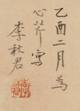 乙酉二月為
心芹写
李秋君